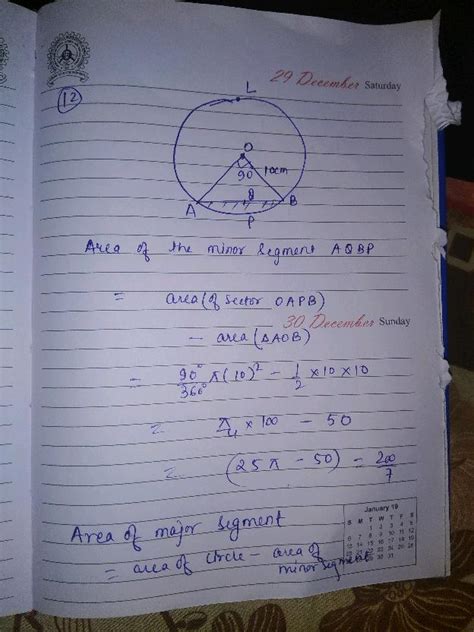 29 December Saturday
(12)
L
O
90
10cm
A
B
P
Area of the minor segment AQBP
= area (of sector OAPB)
30 December Sunday
- area (ΔAOB)
= 90°/360° π(10)² - 1/2 × 10 × 10
= π/4 × 100 - 50
= (25π - 50) = 200/7
Area of major segment
= area of circle - area of
minor segment
January 19
S M T W T F S